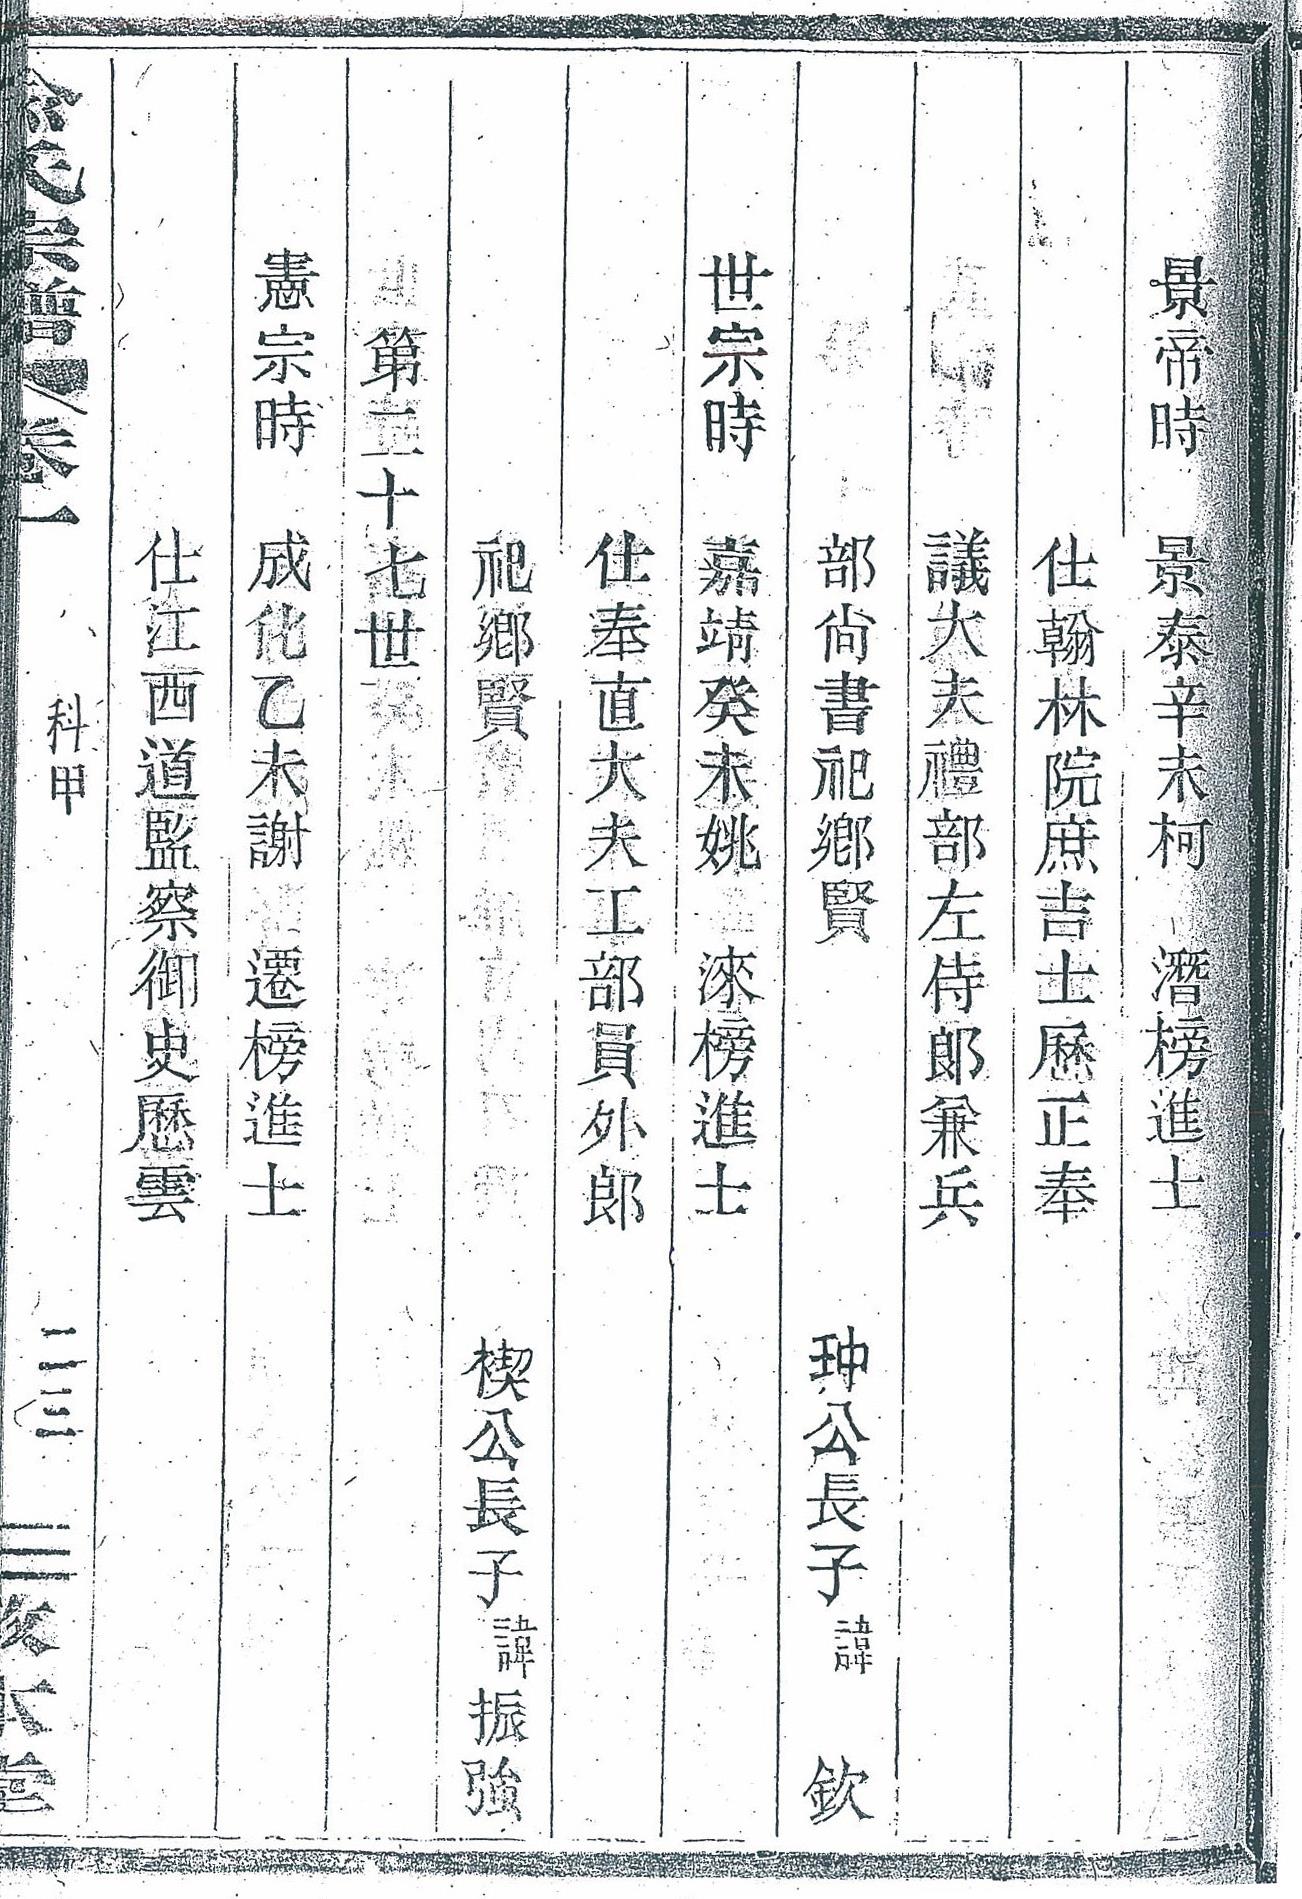 景帝時 景泰辛未柯 潛榜進士
仕翰林院庶吉士歷正奉
議大夫禮部左侍郎兼兵
部尚書祀鄉賢 珅公長子 諱 欽
世宗時 嘉靖癸未姚 淶榜進士
仕奉直大夫工部員外郎
祀鄉賢 楔公長子 諱振強
第二十七世
憲宗時 成化乙未謝 遷榜進士
仕江西道監察御史歷雲
氏宗譜 卷一 科甲 二三 敦本堂